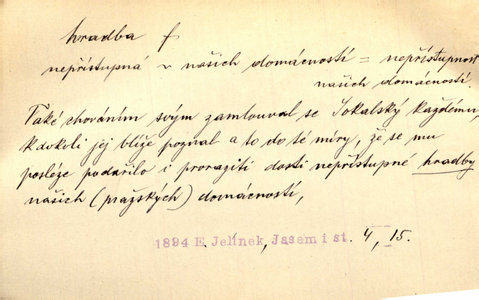 hradba f
nepřístupná ~ našich domácností = nepřístupnost
našich domácností.
Také chováním svým zamlouval se Sokalský každému,
kdokoli jej blíže poznal a to do té míry, že se mu
posléze podařilo i proraziti dosti nepřístupné hradby
našich (pražských) domácností,
1894 E. Jelínek, Jasem i st. 4, 15.